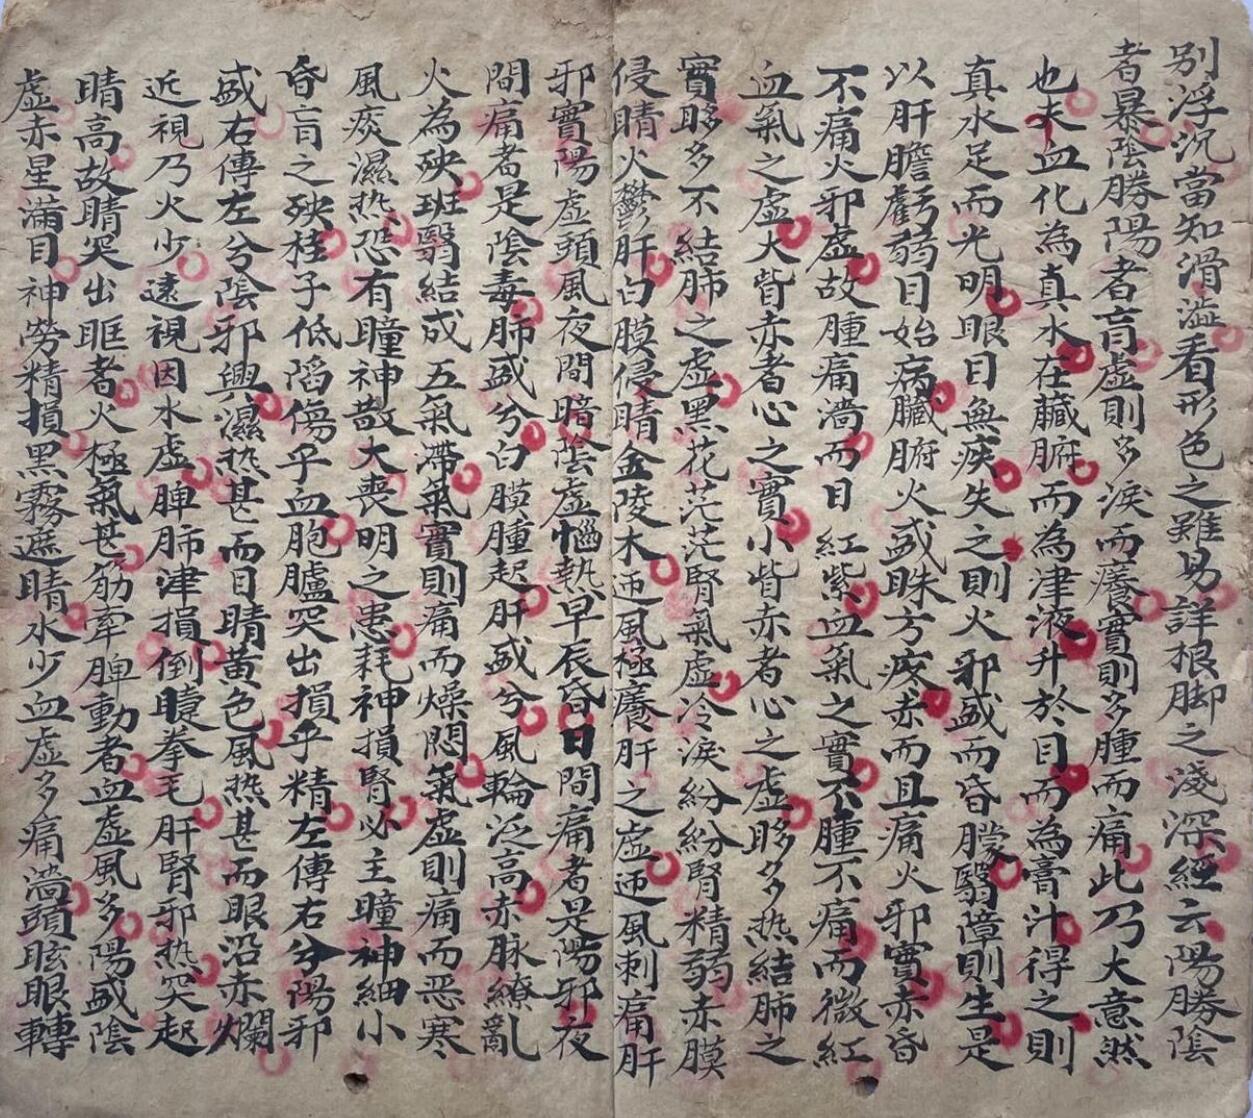 別浮沉當知滑澁看形色之雖易詳根脚之淺深經云陽勝陰
者暴陰勝陽者盲虛則多淚而癢實則多腫而痛此乃大意然
也夫血化為真水在臟腑而為津液升於目而為膏汁得之則
真水足而光明眼目無疾失之則火邪盛而昏朦翳障則生是
以肝膽虧弱目始病臟腑火盛眛方疼赤而且痛火邪實赤昏
不痛火邪虛故腫痛濇而目紅紫血氣之實不腫不痛而微紅
血氣之虛大眥赤者心之實小眥赤者心之虛眵多热結肺之
實眵多不結肺之虛黑花茫茫腎氣虛冷淚紛紛腎精弱赤膜
侵睛火鬱肝白膜侵睛金陵木迊風極癢肝之虛迊風刺痛肝
邪實陽虛頭風夜間暗陰虛惱熱早辰昏日間痛者是陽邪夜
間痛者是陰毒肺盛兮白膜腫起肝盛兮風輪泛高赤脉繚亂
火為殃班翳結成五氣滯氣實則痛而燥悶氣虛則痛而惡寒
風痰濕热恐有瞳神散大喪明之患耗神損腎必主瞳神細小
昏盲之殃桂子低滔傷乎血胞臚突出損乎精左傳右兮陽邪
盛右傳左兮陰邪興濕热甚而目睛黃色風热甚而眼沿赤爛
近視乃火少遠視因水虛脾肺津損倒睫拳毛肝腎邪热突起
睛高故睛突出眶者火極氣甚筋牽脾動者血虛風多陽盛陰
虛赤星滿目神勞精損黑霧遮睛水少血虛多痛濇頭眩眼轉